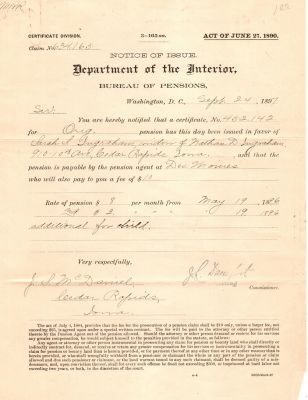 CERTIFICATE DIVISION.
3—165 a.
ACT OF JUNE 27, 1890.
Claim No.
NOTICE OF ISSUE.
Department of the Interior,
BUREAU OF PENSIONS,
Washington, D. C., Sept. 24, 1897
Sir:
You are hereby notified that a certificate, No. 452142
for Orig. pension has this day been issued in favor of
Sarah S. Ingraham widow of Nathan D. Ingraham
Cedar Rapids Iowa, and that the
pension is payable by the pension agent at Des Moines
who will also pay to you a fee of $10
Rate of pension $ 8 per month from May 19 1896
$ 2 " 19 1896
additional for child.
Very respectfully,
J. S. McDaniel,
Cedar Rapids,
Iowa.
Commissioner.
The act of July 4, 1884, provides that the fee for the prosecution of a pension claim shall be $10 only, unless a larger fee, not
exceeding $25, is agreed upon under a special written contract. The fee will be paid to the attorney or other person entitled
thereto by the Pension Agent out of the pension allowed. Should the attorney or other person demand or receive for his services any
greater compensation, he would subject himself to the penalties prescribed in said act, as follows:
Any agent or attorney or other person instrumental in prosecuting any claim for pension or bounty land who shall directly or
indirectly contract for, demand, or receive or retain any greater compensation for his services or instrumentality in prosecuting a
claim for pension or bounty land than is herein provided, or for payment thereof at any other time or in any other manner than is
herein provided, or who shall wrongfully withhold from a pensioner or claimant the whole or any part of the pension or claim
allowed and due such pensioner or claimant, or the land warrant issued to any such claimant, shall be deemed guilty of a mis-
demeanor, and, upon conviction thereof, shall for every such offense be fined not exceeding $500, or imprisoned at hard labor not
exceeding two years, or both, in the discretion of the court.